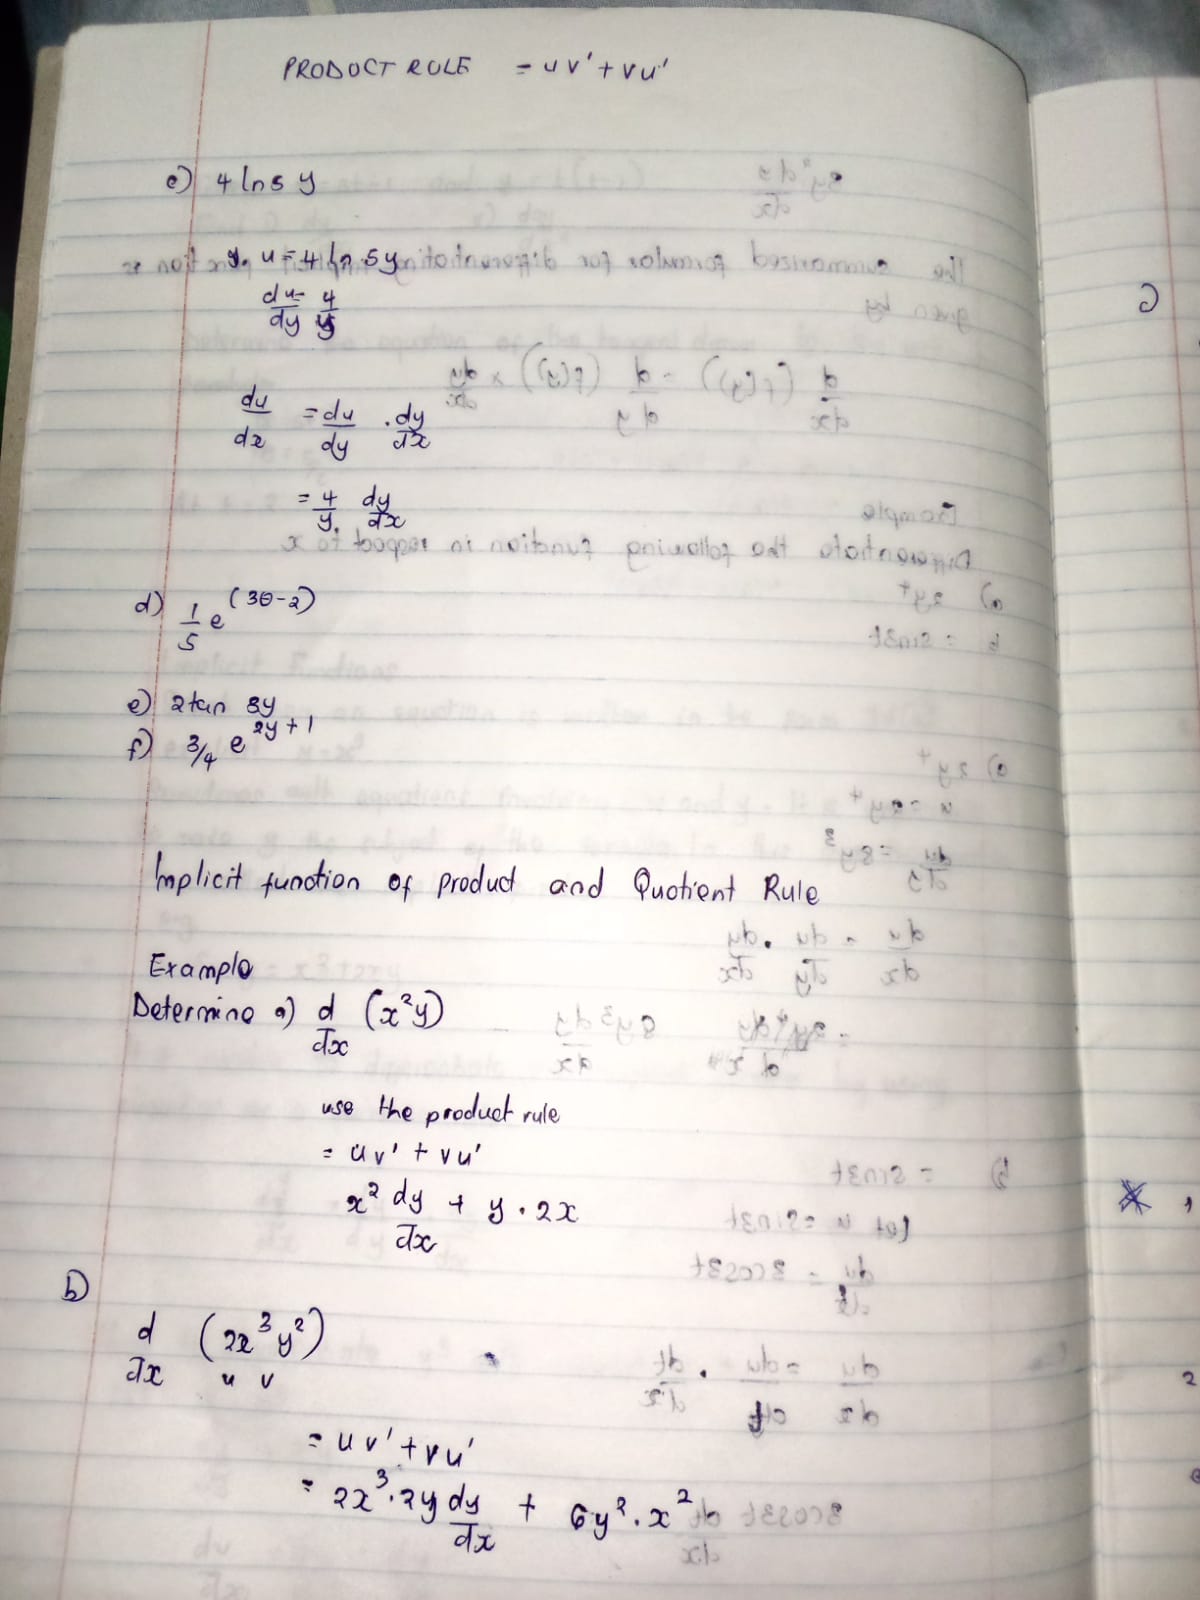 PRODUCT RULE = uv' + vu'
c) 4 ln 5 y
u = 4 ln 5y
du/dy = 4/y
du/dx = du/dy . dy/dx
= 4/y . dy/dx
d) 1/5 e^(3θ-2)
e) 2tan 3y
f) 3/4 e^2y+1
Implicit function of product and Quotient Rule
Example
Determine a) d/dx (x²y)
use the product rule
= uv' + vu'
x² dy/dx + y . 2x
b)
d/dx (2x³y²)
u v
= uv' + vu'
= 2x³.2y dy/dx + 6y².x²